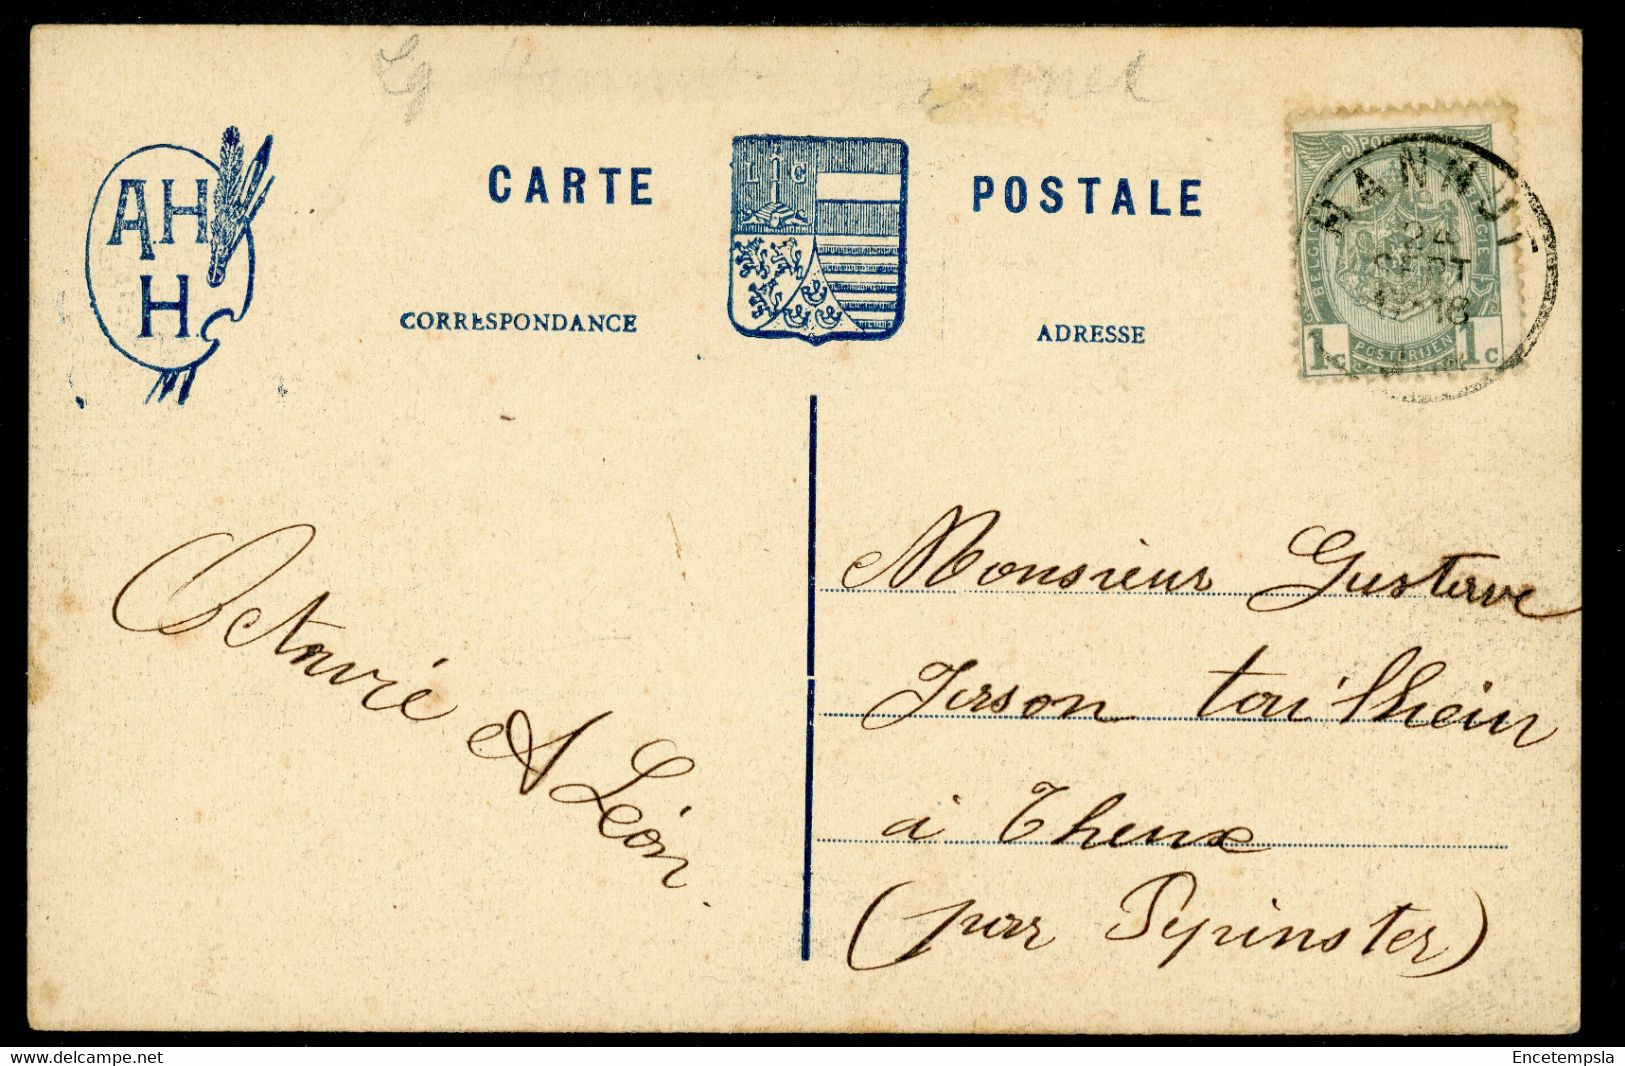 A H
H
CARTE
POSTALE
L I C
CORRESPONDANCE
ADRESSE
HANNUT
24
SEPT
18
BELGIQUE
POSTERIJEN
1c
1c
Octavie & Léon.
Monsieur Gustave
Jerson tailheur
à Theux
(par Pepinster)
Delcampe.net
Encetempsla